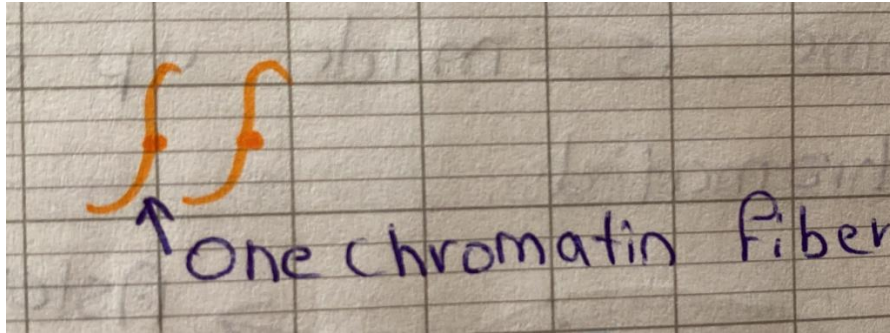 One chromatin fiber